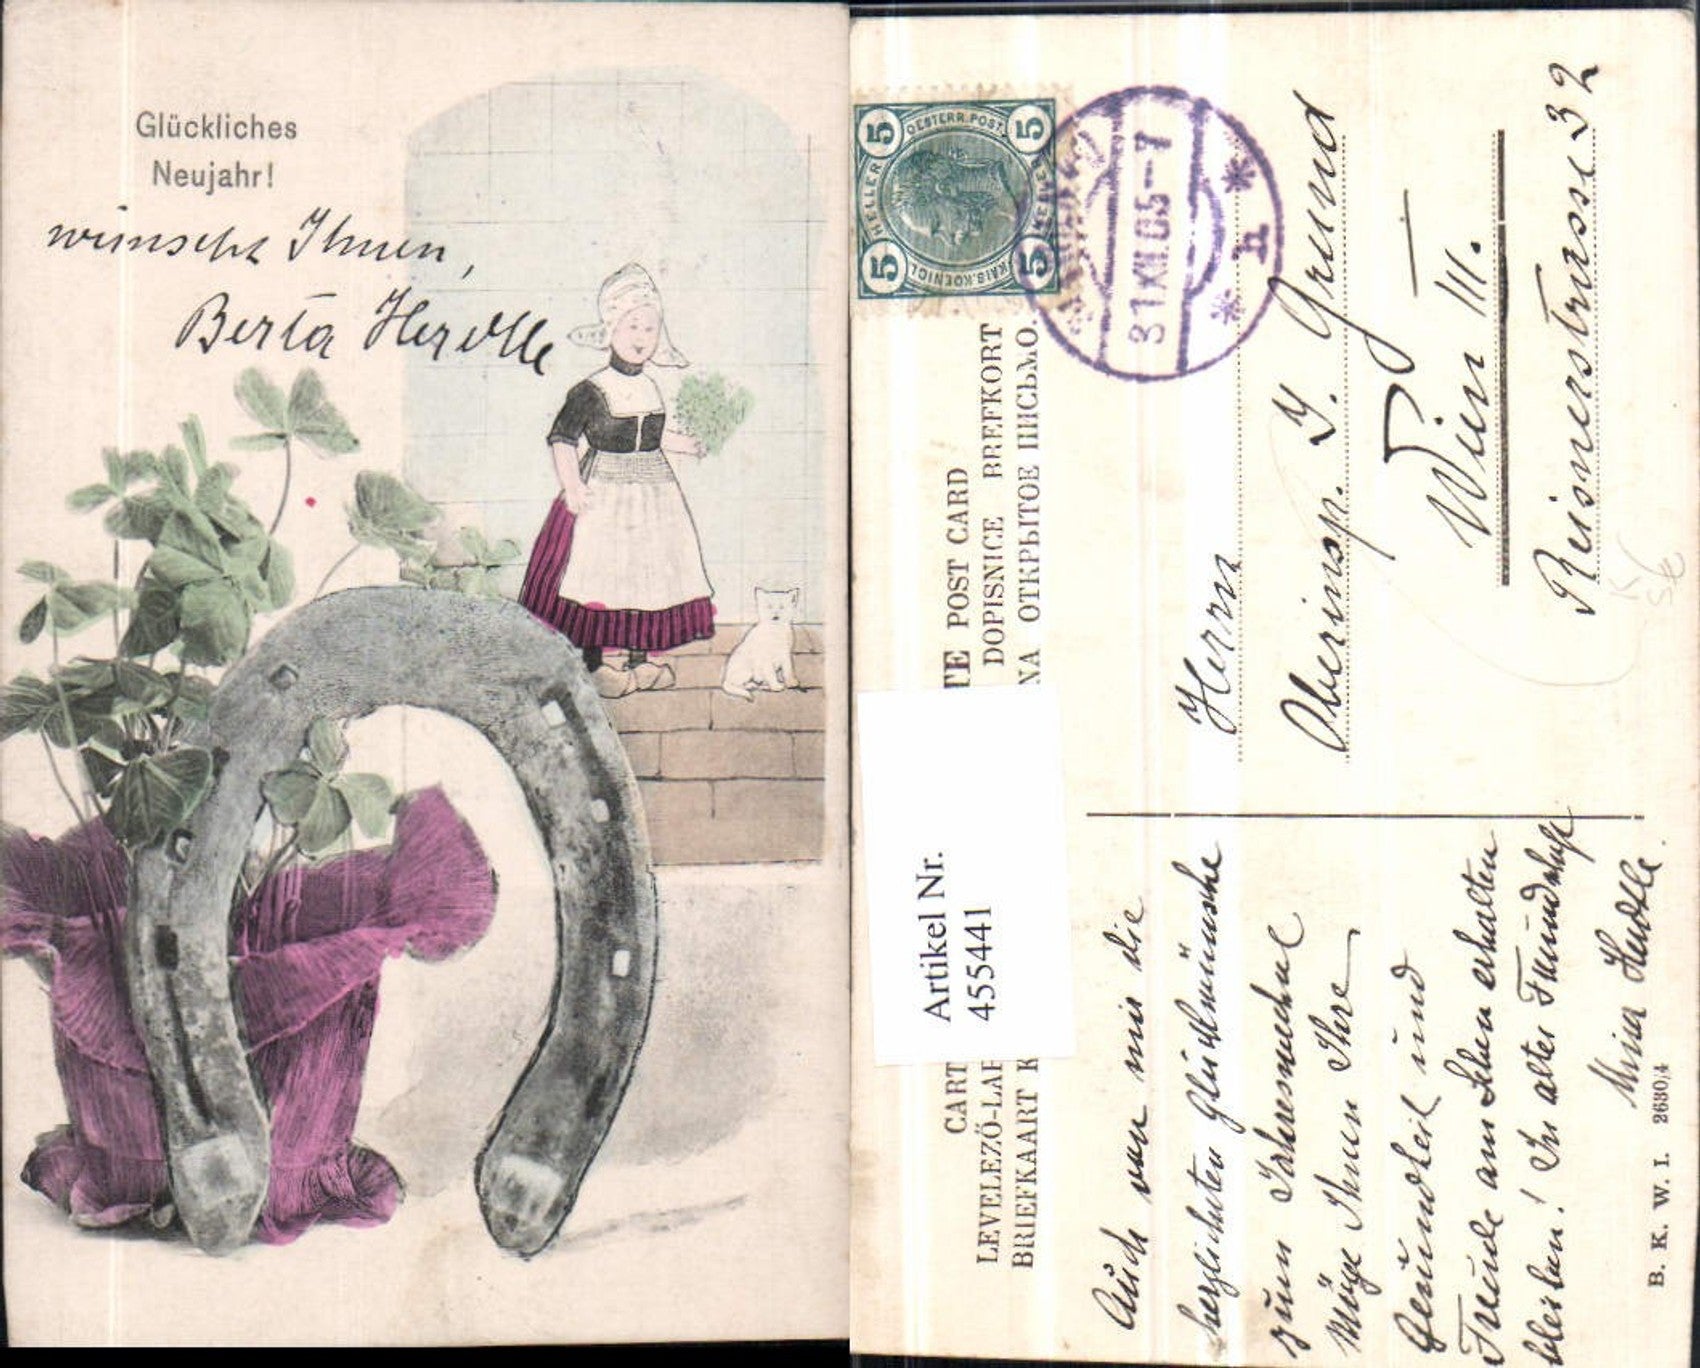 Glückliches
Neujahr!
wünscht Ihnen,
Berta
5 5 5 5
OESTERR.POST.
HELLER HELLER
KAIS.KOENIGL
31 XII 05-7
* h *
TE POST CARD
DOPISNICE BREFKORT
NA ОТКРЫТОЕ ПИСЬМО.
CART
LEVELEZŐ-LAP
BRIEFKAART K
Artikel Nr.
455441
Herrn
Oberinsp. J. Grund
Wien III.
Reisnerstrasse 32
Auch von mir die
herzlichsten Glückwünsche
zum Jahreswechsel
Möge Ihnen Ihre
Gesundheit und
Freude am Leben erhalten
bleiben! In alter Freundschaft
Mina
B. K. W. I. 2630/4